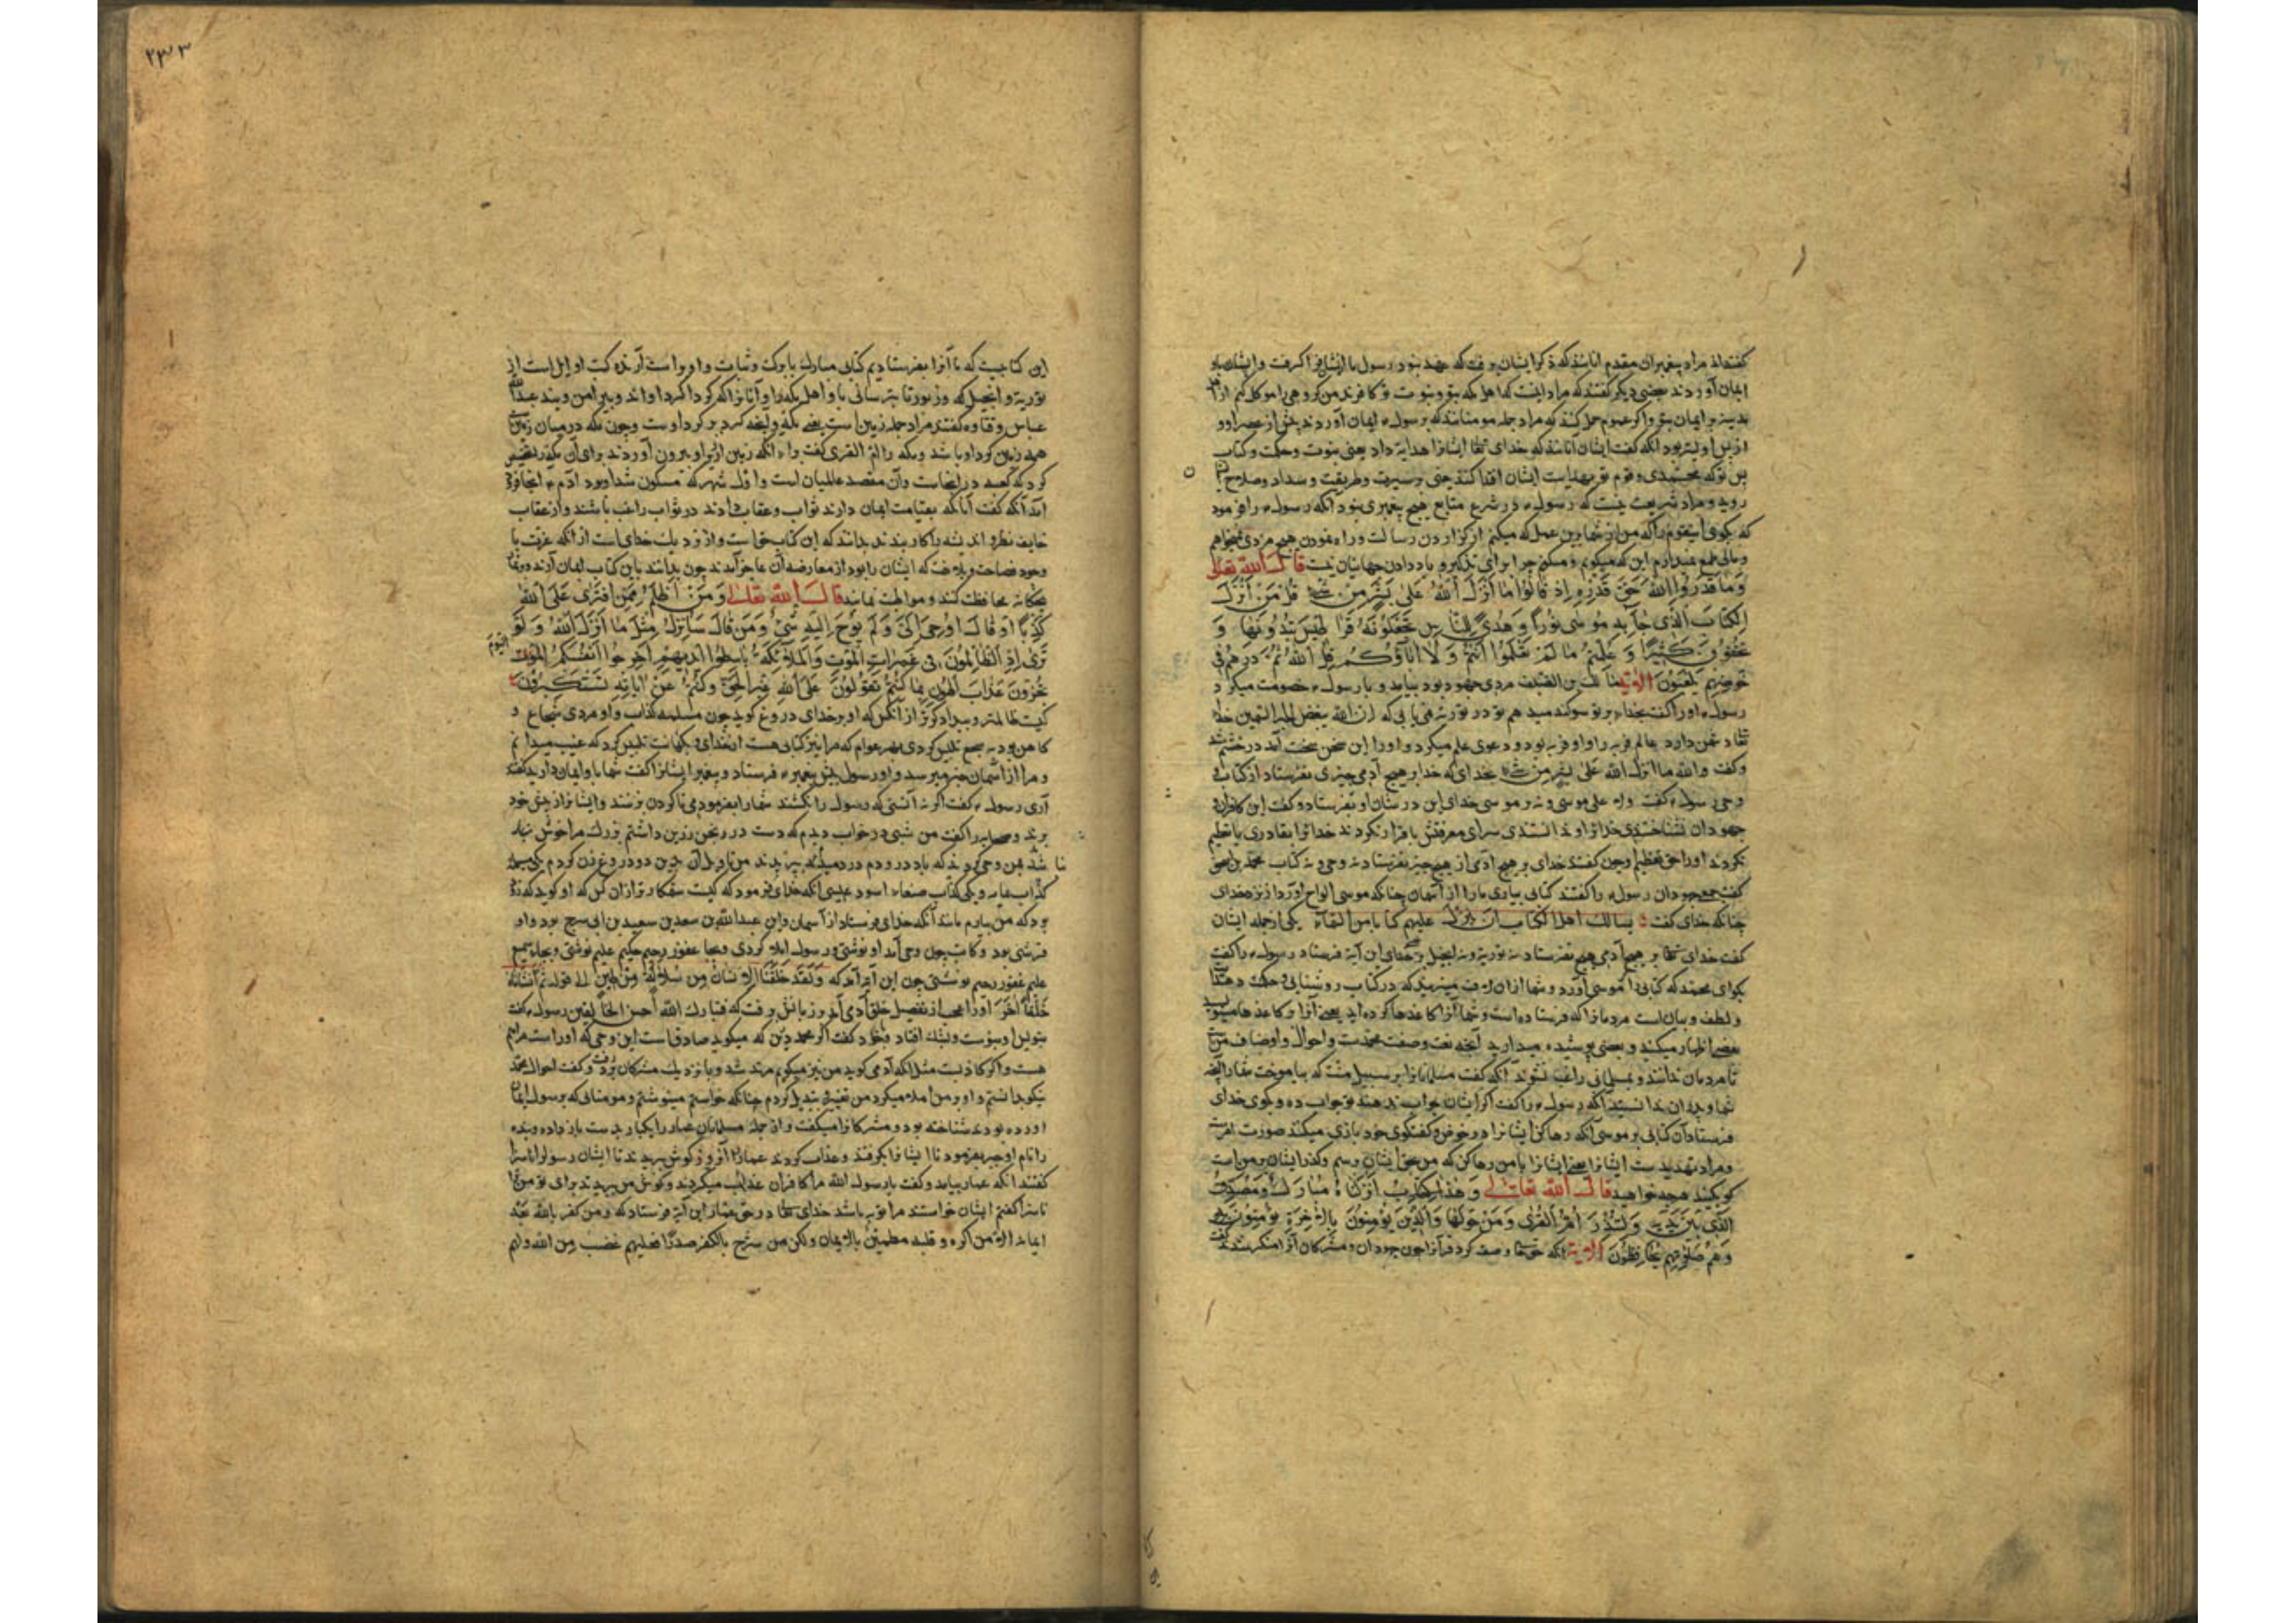 گفته‌اند مراد پیغمبران مقدم‌اند که ذکر ایشان برفت که عهد نبود رسول ما
ایمان آوردند بعضی دیگر گفتند که مراد اینست که اهل مکه بتو و نبوت تو کافرند من گروهی را موکل کنم از
مدینه بر ایمان بتو و اگر عموم حمل کنند که مراد جمله مومنانند که برسول ایمان آوردند پیش از عصر او و
ازین اولیتر بود آنکه گفت ایشان آنانند که خدای تعا ایشانرا هدایة داد یعنی نبوت و حکمت و کتاب
پس تو که محمدی و قوم تو بهدایت ایشان اقتدا کنند یعنی سیرت و طریقت و سداد و صلاح
روید و مراد شریعت نیست که رسول در شرع متابع هیچ پیغمبری نبود آنکه رسول را فرمود
که بگوی ای قوم آنکه من از شما برین عمل که میکنم از گزاردن رسالت و راه نمودن هیچ مزدی نمیخواهم
و مالی طمع نمیدارم این که میگویم و میکنم جز از برای تذکیر و یاد دادن جهانیان نیست قال الله تعالی
وَمَا قَدَرُوا اللهَ حَقَّ قَدْرِهِ اِذْ قَالُوا مَا اَنْزَلَ اللهُ عَلٰی بَشَرٍ مِنْ شَیْءٍ قُلْ مَنْ اَنْزَلَ
الکِتَابَ الَّذِی جَآءَ بِهِ مُوسٰی نُورًا وَ هُدًی لِلنَّاسِ تَجْعَلُونَهُ قَرَاطِیسَ تُبْدُونَهَا وَ
تُخْفُونَ کَثِیْرًا وَ عُلِّمْتُمْ مَا لَمْ تَعْلَمُوا اَنْتُمْ وَ لَا اٰبَآؤُکُمْ قُلِ اللهُ ثُمَّ ذَرْهُمْ فِی
خَوْضِهِمْ یَلْعَبُونَ الآیة مالک بن الضیف مردی جهود بود بیامد و با رسول خصومت میکرد
رسول او را گفت بخدای بر تو سوگند میدهم تو در توریة می یابی که ان الله یبغض الحبر السمین خدای
تعا دشمن دارد عالم فربه را و او فربه بود و دعوی علم میکرد و او را این سخن سخت آمد در خشم شد
و گفت والله ما انزل الله علی بشر من شیء بخدای که خدا بر هیچ آدمی چیزی نفرستاد از کتاب و
وحی رسول گفت ولا علی موسی و نه بر موسی خدای این در شان او بفرستاد و گفت این کافران و
جهودان نشناختند خدایرا و ندانستند سزای معرفتش با اقرار نکردند خدایرا بقادری یا تعظیم
نکردند او را حق تعظیم او چون گفتند خدای بر هیچ آدمی از هیچ چیز نفرستاد نه وحی و نه کتاب محمد بن اسحق
گفت جمع جهودان رسول را گفتند کتابی بیاری ما را از آسمان چنانکه موسی الواح آورد از نزد خدای
چنانکه خدای گفت یسالک اهل الکتاب ان تنزل علیهم کتابا من السمآء یکی از جمله ایشان
گفت خدای تعا بر هیچ آدمی هیچ نفرستاد نه توریة و نه انجیل خدای این آیة فرستاد رسول را گفت
بگو ای محمد که کتابی را موسی آورد و شما از ان لاف میزنید که در کتاب روشنایی و حکمت
و لطف و بیان است مردمانرا که فرستاده است و شما آنرا کاغذها کرده‌اید یعنی آنرا در کاغذها
بعضی اظهار میکنید و بعضی پوشیده میدارید آنچه نعت و صفت محمدست و احوال و اوصاف
تا مردمان ندانند و بمسلمانی راغب نشوند آنگه گفت مسلمانانرا بر سبیل منت که بیاموخت شما را آنچه
شما و پدران ندانستید آنکه رسول را گفت اگر ایشان جواب ندهند تو جواب ده و بگوی خدای
فرستاد آن کتابی بر موسی آنکه رها کن ایشانرا در خوض و گفتگوی خود بازی میکنند صورت امرست
و مراد تهدیدست ایشانرا یعنی ایشانرا با من رها کن که من بحق ایشان برسم
گو بکنید هرچه خواهید قال الله تعالی وَ هٰذَا کِتَابٌ اَنْزَلْنَاهُ مُبَارَکٌ مُصَدِّقُ
الَّذِی بَیْنَ یَدَیْهِ وَ لِتُنْذِرَ اُمَّ الْقُرٰی وَ مَنْ حَوْلَهَا وَ الَّذِینَ یُؤْمِنُونَ بِالاٰخِرَةِ یُؤْمِنُونَ بِهِ
وَ هُمْ عَلٰی صَلٰوتِهِمْ یُحَافِظُونَ الآیة آنکه حق تعا وصف کرد قرآنرا چون جهودان و مشرکان آنرا منکر شدند گفت
۲۳۳
این کتابیست که ما آنرا بفرستادیم کتابی مبارک با برکت و ثبات و او راست دارنده کتب اوایل است از
توریة و انجیل که و زبور تا بترسانی باو اهل مکه را و آنانرا که گرداگرد او اند و پیرامن ویند عبدالله
عباس و قتاده گفتند مراد جمله زمین است یعنی مکه و آنچه گرد بر گرد اوست و چون مکه در میان زمین است
همه زمین گرد او باشد و مکه را ام القری گفت برای آنکه زمین از زیر او بیرون آوردند برای آن مکه را تخصیص
کرد که کعبه در انجاست و آن مقصد عالمیان است و اول شهر که مسکون شد او بود آدم
آمد آنکه گفت آنانکه بقیامت ایمان دارند ثواب و عقاب دانند در ثواب راغب باشند و از عقاب
خایف نظر و اندیشه را کار بندند بدانند که این کتاب حق است و از نزدیک خدای است از آنکه عرب با
وجود فصاحت و بلاغت که ایشان را بود از معارضه آن عاجز آمدند چون بدانند باین کتاب ایمان آرند
پنجگانه محافظت کنند و مواظبت نمایند قال الله تعالی وَ مَنْ اَظْلَمُ مِمَّنِ افْتَرٰی عَلَی اللهِ
کَذِبًا اَوْ قَالَ اُوحِیَ اِلَیَّ وَ لَمْ یُوحَ اِلَیْهِ شَیْءٌ وَ مَنْ قَالَ سَاُنْزِلُ مِثْلَ مَا اَنْزَلَ اللهُ وَ لَوْ
تَرٰی اِذِ الظَّالِمُونَ فِی غَمَرَاتِ الْمَوْتِ وَ الْمَلٰٓئِکَةُ بَاسِطُوا اَیْدِیهِمْ اَخْرِجُوا اَنْفُسَکُمُ الْیَوْمَ
تُجْزَوْنَ عَذَابَ الْهُونِ بِمَا کُنْتُمْ تَقُولُونَ عَلَی اللهِ غَیْرَ الْحَقِّ وَ کُنْتُمْ عَنْ اٰیَاتِهِ تَسْتَکْبِرُونَ
کیست ظالمتر و بیدادگرتر از آنکس که او بر خدای دروغ گوید چون مسیلمه کذاب و او مردی شجاع و
کاهن بود تلبیس کردی بهر عوام که مرا نیز کتابی هست از خدای و بکهانت تلبیس کرد که غیب میدانم
و مرا از آسمان خبر میرسد و او رسول پیش پیغمبر فرستاد و پیغمبر ایشانرا گفت شما باو ایمان دارید گفتند
آری رسول گفت اگر نه آنستی که رسول را نکشند شما را بفرمودمی تا گردن بزنند و ایشانرا از پیش خود
براند و صحابه را گفت من شبی در خواب دیدم که دست در رنجن زرین داشتم بزرگ مرا خوش نیامد
شد بمن وحی کردند که باد در و دم دردمیدم بپریدند من تاویل آن بدین دو دروغ زن کردم یکی مسیلمه
کذاب یمامه و یکی کذاب صنعا اسود عنسی آنکه خدای فرمود که کیست ستمکارتر از آن کس که او گوید که
بود که من بیارم مانند آنکه خدای فرستاد از آسمان و این عبدالله بن سعد بن سعید بن ابی سرح بود و او
قرشی بود و کاتب چون وحی آمد او نوشتی و رسول املا کردی و بجا غفور رحیم حکیم علیم نوشتی و بجای سمیع
علیم غفور رحیم نوشتی چون این آیة آمد که وَ لَقَدْ خَلَقْنَا الاِنْسَانَ مِنْ سُلَالَةٍ مِنْ طِینٍ الی قوله ثُمَّ اَنْشَاْنَاهُ
خَلْقًا اٰخَرَ او را عجب آمد از تفصیل خلق آدمی بر زبانش برفت که فتبارک الله احسن الخالقین رسول گفت
بنویس او بنوشت و بشک افتاد و با خود گفت اگر محمد درین که میگوید صادق است این وحی که او راست مرا هم
هست و اگر کاذبست مثل آنکه آدمی گوید من نیز میگویم مرتد شد و با نزدیک مشرکان رفت و گفت احوال محمد
نیکو بدانستم و او بر من املا میکرد من تغییر و تبدیل کردم چنانکه خواستم مینوشتم و مومنانی که برسول ایمان
آورده بودند شناخته بود و مشرکانرا میگفت و از جمله مسلمانان عمار را بکفار بدست باز داده
را نام او جبر بفرمود تا ایشانرا بگرفتند و عذاب کردند عمار را و گوش ببریدند تا ایشان رسول را ناسزا
گفتند آنکه عمار بیامد و گفت یا رسول الله مرا کافران عذاب میکردند و گوش من ببریدند برای تو من ترا
ناسزا گفتم ایشان خواستند مرا توبه باشد خدای تعا در حق عمار این آیة فرستاد که و من کفر بالله بعد
ایمانه الا من اکره و قلبه مطمئن بالایمان ولکن من شرح بالکفر صدرا فعلیهم غضب من الله و لهم